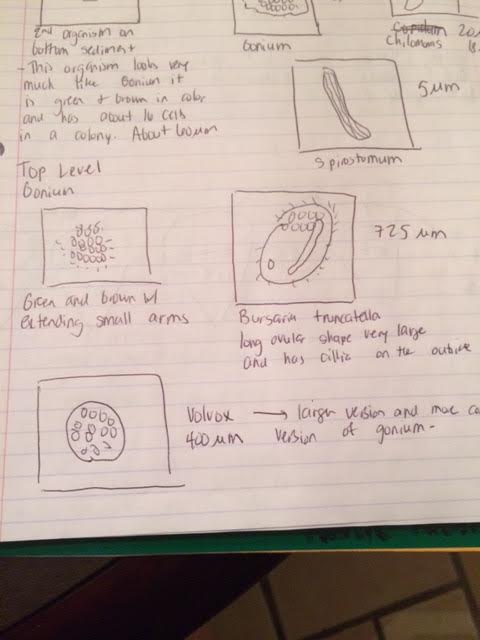 2nd organism on
bottom sediment
- This organism looks very
much like Gonium it
is green & brown in color
and has about 16 cells
in a colony. About 60 um
Gonium
Chilomonas
5 um
Spirostomum
Top Level
Gonium
Green and brown w/
extending small arms
725 um
Bursaria truncatella
long ovular shape very large
and has cillia on the outside
Volvox → larger version and
400 um version of gonium-